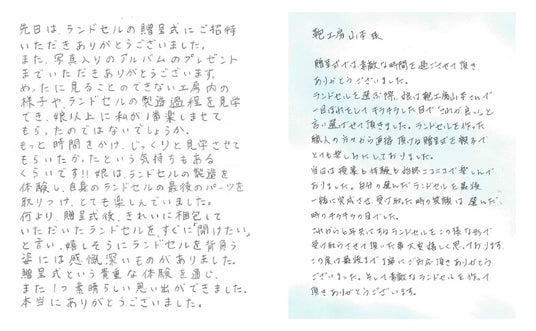 先日は、ランドセルの贈呈式にご招待
いただきありがとうございました。
また、写真入りのアルバムのプレゼント
までいただきありがとうございます。
めったに見ることのできない工房内の
様子や、ランドセルの製造過程を見学
でき、娘以上に私が1番楽しませて
もらったのではないでしょうか。
もっと時間をかけ、じっくりと見学させて
もらいたかったという気持ちもある
くらいです!!娘は、ランドセルの製造を
体験し、自身のランドセルの最後のパーツを
取りつけ、とても楽しんでいました。
何より、贈呈式後、きれいに梱包して
いただいたランドセルを、すぐに「開けたい」
と言い、嬉しそうにランドセルを背負う
姿には感慨深いものがありました。
贈呈式という貴重な体験を通じ、
また1つ素晴らしい思い出ができました。
本当にありがとうございました。
鞄工房山本 様
贈呈式では素敵な時間を過ごさせて頂き
ありがとうございました。
ランドセルを選ぶ際、娘は鞄工房山本さんで
一目ぼれをしてキラキラした目で「これが良い」と
言い選ばせて頂きました。ランドセルを作った
職人の方々から直接頂ける贈呈式を親子で
とても楽しみにしておりました。
当日は授業も体験も始終ニコニコで楽しんで
おりました。自分の選んだランドセルを最後
一緒に完成させ受け取った時の笑顔は、選んだ
時のキラキラの目でした。
これから6年共にするランドセルをこの様な形で
受け取らせて頂いた事大変嬉しく思っております。
この度は最後まで丁寧にご対応頂きありがとう
ございました。そして素敵なランドセルを作って
頂きありがとうございます。